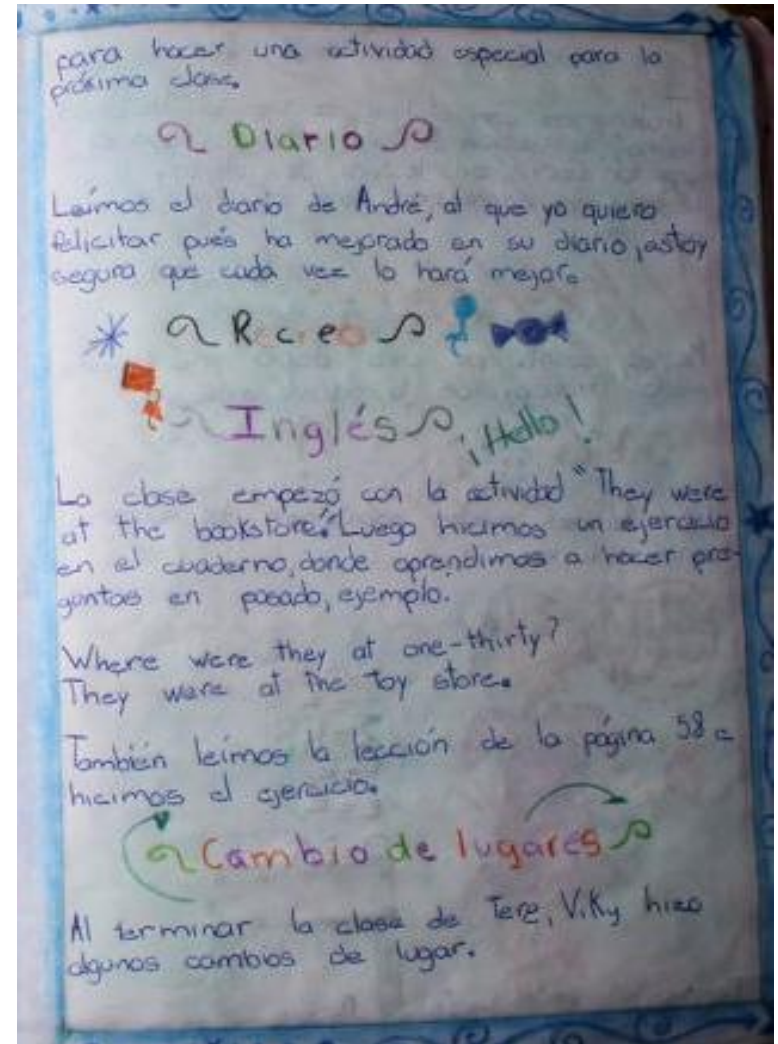 para hacer una actividad especial para la
próxima clase.
Diario
Leímos el diario de André, al que yo quiero
felicitar pués ha mejorado en su diario, estoy
segura que cada vez lo hará mejor.
Recreo
Inglés ¡Hello!
La clase empezó con la actividad "They were
at the bookstore." Luego hicimos un ejercicio
en el cuaderno, donde aprendimos a hacer pre-
guntas en pasado, ejemplo.
Where were they at one-thirty?
They were at the toy store.
También leímos la lección de la página 58 e
hicimos el ejercicio.
Cambio de lugares
Al terminar la clase de Tere, Viky hizo
algunos cambios de lugar.